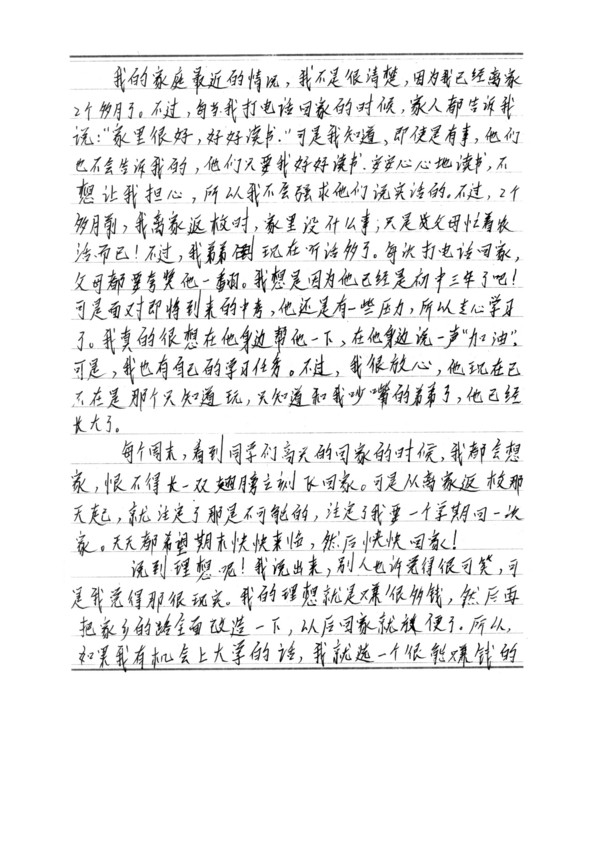 我的家庭最近的情况，我不是很清楚，因为我已经离家
2个多月了。不过，每当我打电话回家的时候，家人都告诉我
说：“家里很好，好好读书。”可是我知道，即使是有事，他们
也不会告诉我的，他们只要我好好读书，安安心心地读书，不
想让我担心，所以我不会强求他们说实话的。不过，2个
多月前，我离家返校时，家里没什么事，只是父母忙着农
活而已！不过，我弟弟倒现在听话多了。每次打电话回家，
父母都要夸奖他一番。我想是因为他已经是初中三年了吧！
可是面对即将到来的中考，他还是有一些压力，所以走心学习
了。我真的很想在他身边帮他一下，在他身边说一声“加油”，
可是，我也有自己的学习任务。不过，我很放心，他现在已
不在是那个只知道玩，只知道和我吵嘴的弟弟了，他已经
长大了。
每个周末，看到同学们高兴的回家的时候，我都会想
家，恨不得长一双翅膀立刻飞回家。可是从离家返校那
天起，就注定了那是不可能的，注定了我要一个学期回一次
家。天天都希望期末快快来临，然后快快回家！
说到理想呢！我说出来，别人也许觉得很可笑，可
是我觉得那很现实。我的理想就是赚很多钱，然后再
把家乡的路全面改造一下，以后回家就方便了。所以，
如果我有机会上大学的话，我就选一个很能赚钱的